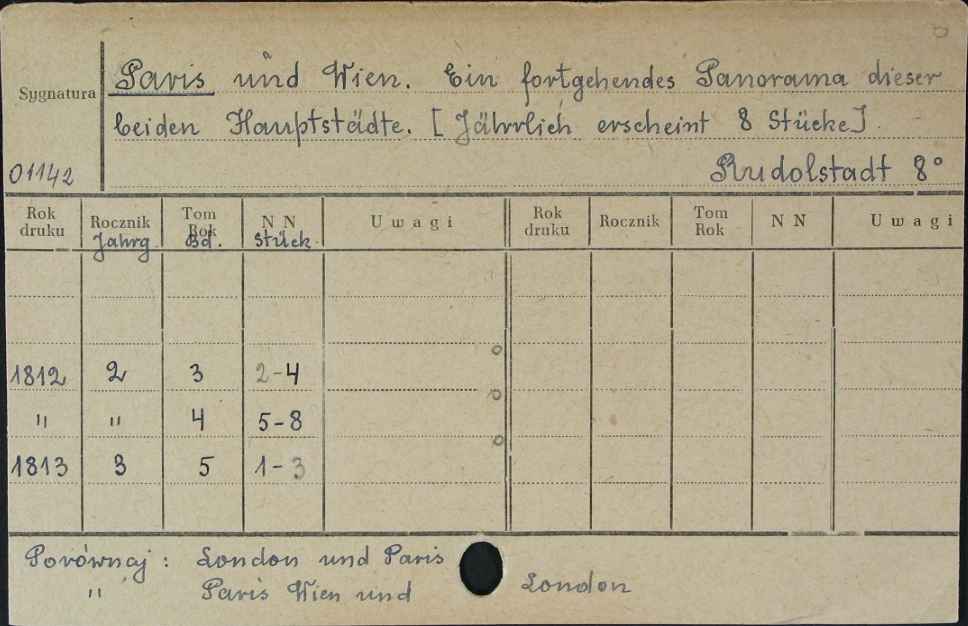 Paris und Wien. Ein fortgehendes Panorama dieser
Sygnatura
beiden Hauptstädte. [Jährlich erscheint 8 Stücke]
01142 Rudolstadt 8°
Rok druku Rocznik Tom Rok N N Uwagi Rok druku Rocznik Tom Rok N N Uwagi
Jahrg. Bd. Stück
1812 2 3 2-4
" " 4 5-8
1813 3 5 1-3
Porównaj: London und Paris
" Paris Wien und London